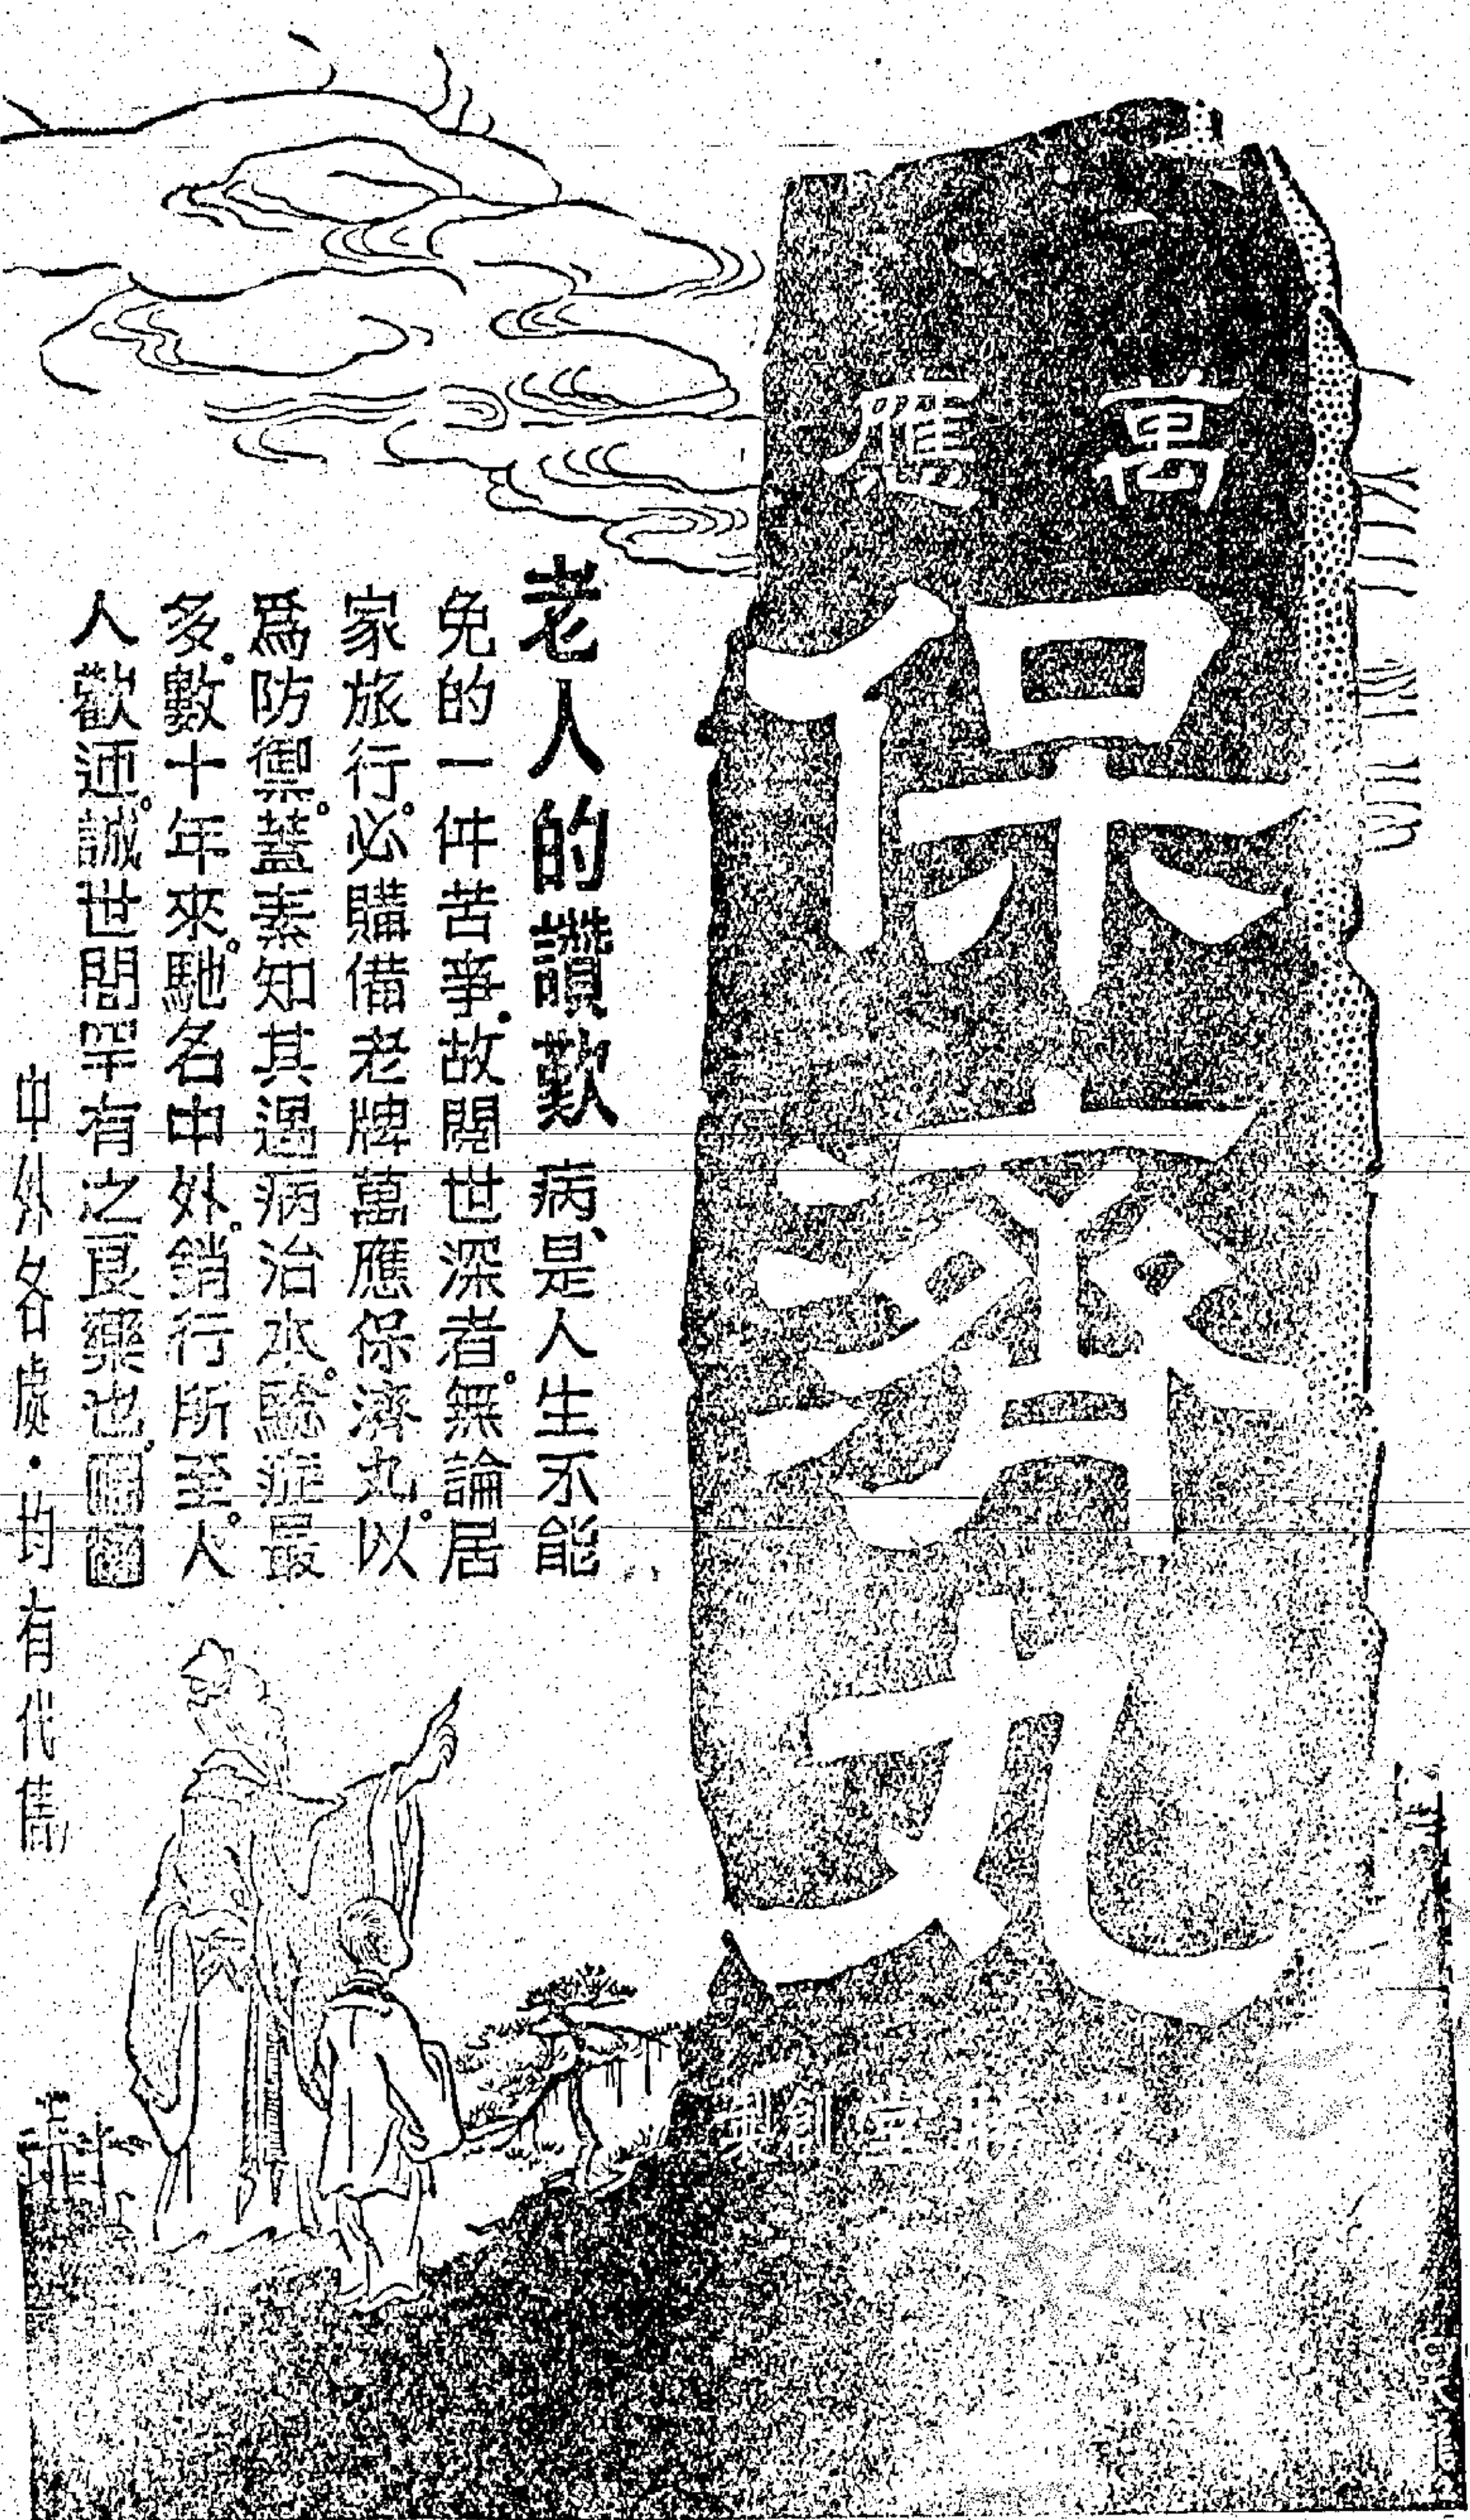 萬應
保濟丸
堂創製
老人的讚歎 病、是人生不能
免的一件苦事.故閱世深者。無論居
家旅行。必購備老牌萬應保濟丸。以
爲防禦。蓋素知其遇病治水。驗症最
多。數十年來。馳名中外。銷行所至。人
人歡迎。誠世間罕有之良藥也、
中外各處・均有代售